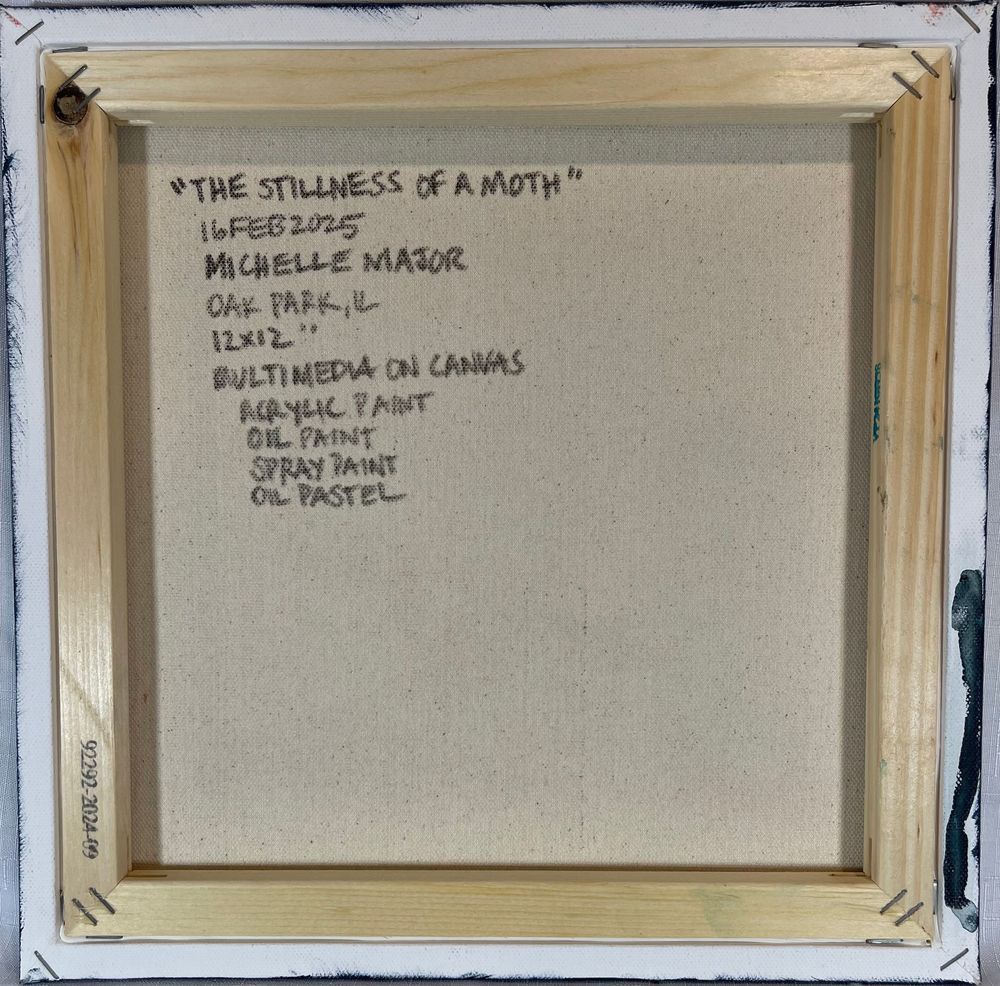 "THE STILLNESS OF A MOTH"
16FEB2025
MICHELLE MAJOR
OAK PARK, IL
12x12"
MULTIMEDIA ON CANVAS
ACRYLIC PAINT
OIL PAINT
SPRAY PAINT
OIL PASTEL
92292-2024-09